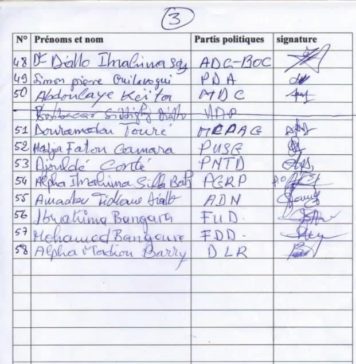 3
N° Prénoms et nom Partis politiques signature
48 Dr Diallo Ibrahima Sg ADC-BOC
49 Simon pierre PDA
50 Abdoulaye Keita MDC
Diallo UDP
51 Douramodou Touré
52 Hadja Fatou Camara PUSG
53 Djouldé Conté PNTD
54 Alpha Ibrahima Silla Bah PGRP
55 Amadou Tidiane Diallo ADN
56 Ibrahima Bangoura FUD.
57 Mohamed Bangoura FDD.
58 Alpha Madiou Barry DLR